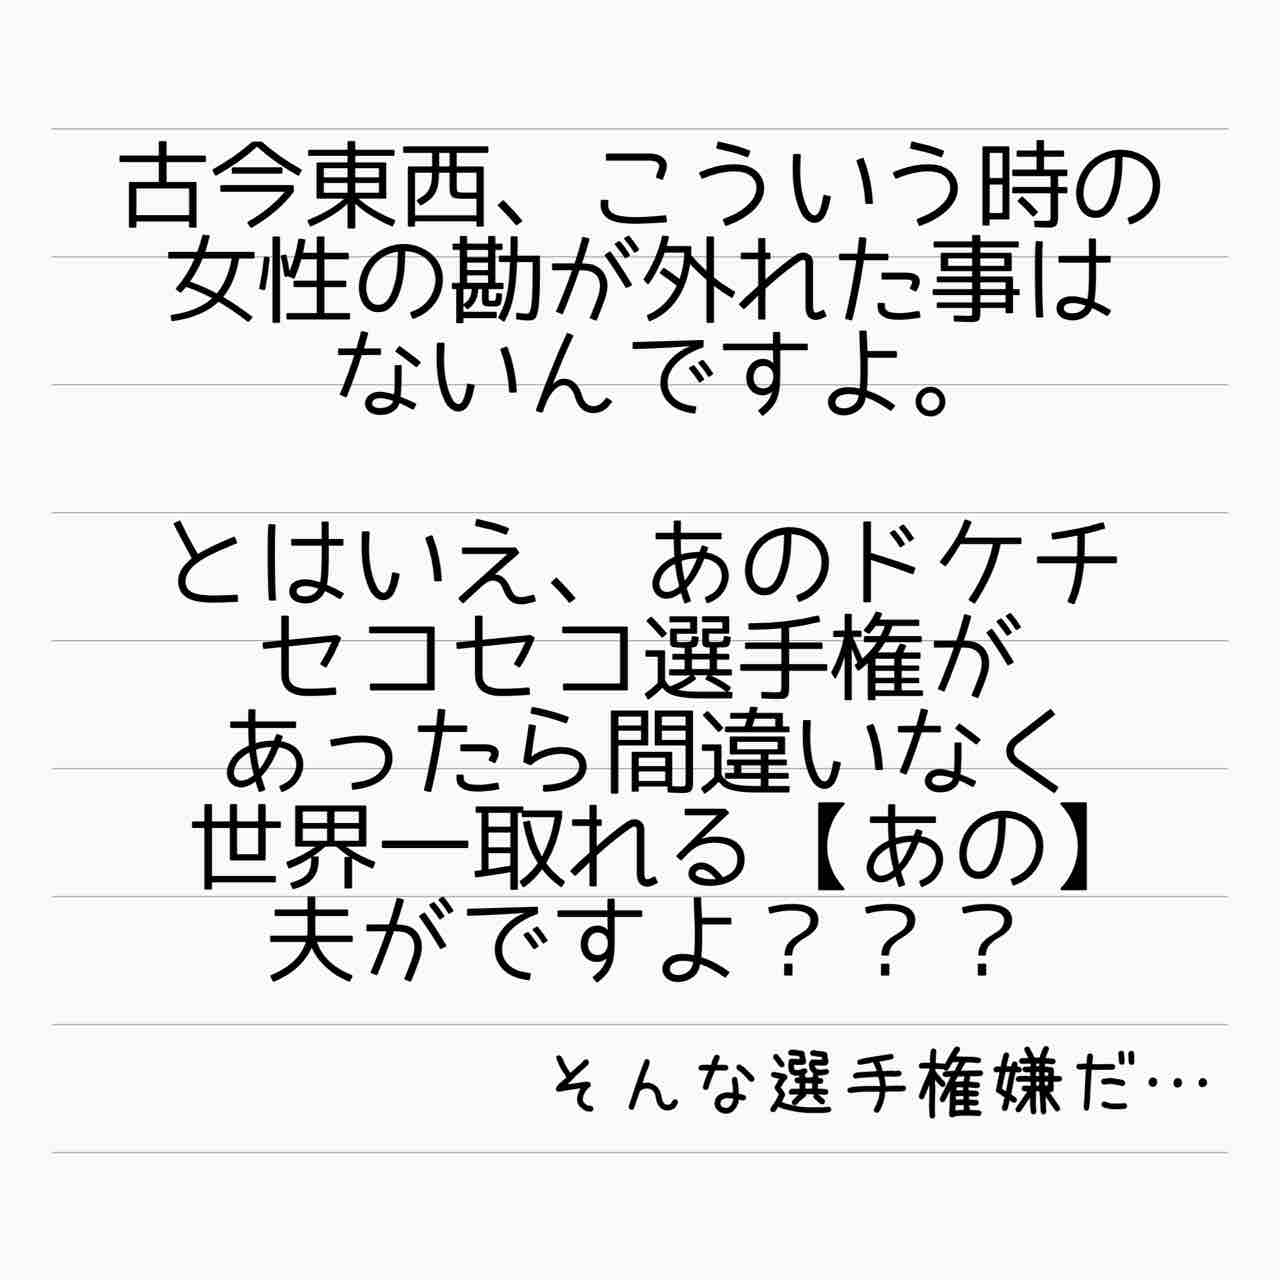 古今東西、こういう時の
女性の勘が外れた事は
ないんですよ。
とはいえ、あのドケチ
セコセコ選手権が
あったら間違いなく
世界一取れる【あの】
夫がですよ？？？
そんな選手権嫌だ…